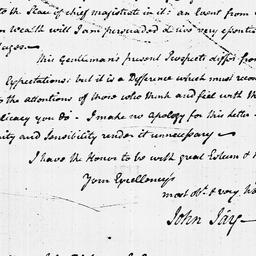 to the State of chief magistrate in it: an Event from
wealth will I am persuaded derive very
This Gentleman's present Prospects differ from
Expectations: but it is a Difference which must recom
to the attentions of those who think and feel with the
licacy you do. I make no apology for this letter
ity and Sensibility render it unnecessary
I have the Honor to be with great Esteem &
Your Excellency's
most obt. & very
John Jay